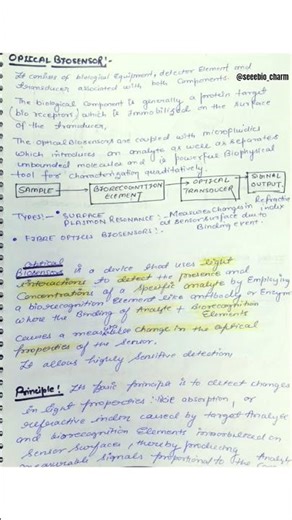 OPTICAL BIOSENSOR:-
@seeebio_charm
It consists of biological Equipment, detector Element and
transducer associated with both Components.
The biological Component is generally a protein target
(bio receptors) which is immobilized on the surface
of the transducer.
The optical Biosensors are coupled with microfluidics
which introduces an analyte as well as separates
unbounded molecules and is powerful Biophysical
tool for Characterizing qualitatively.
SAMPLE → BIORECOGNITION ELEMENT → OPTICAL TRANSDUCER → SIGNAL OUTPUT
TYPES:- • SURFACE PLASMON RESONANCE :- Measures changes in Refractive index
at Sensor Surface due to
Binding event.
• FIBRE OPTICS BIOSENSORS :-
Optical
Biosensors is a device that uses light
interactions to detect the presence and
Concentrations of a specific analyte by Employing
a biorecognition Element like antibody or Enzyme
where the Binding of Analyte + Biorecognition
Elements
Causes a measurable change in the optical
properties of the sensor.
It allows highly sensitive detection.
Principle! Its basic principle is to detect changes
in light properties: absorption, or
refractive index caused by target Analyte
and biorecognition Elements immobilised on
Sensor Surfaces, thereby producing
measurable signals proportional to the Analyte